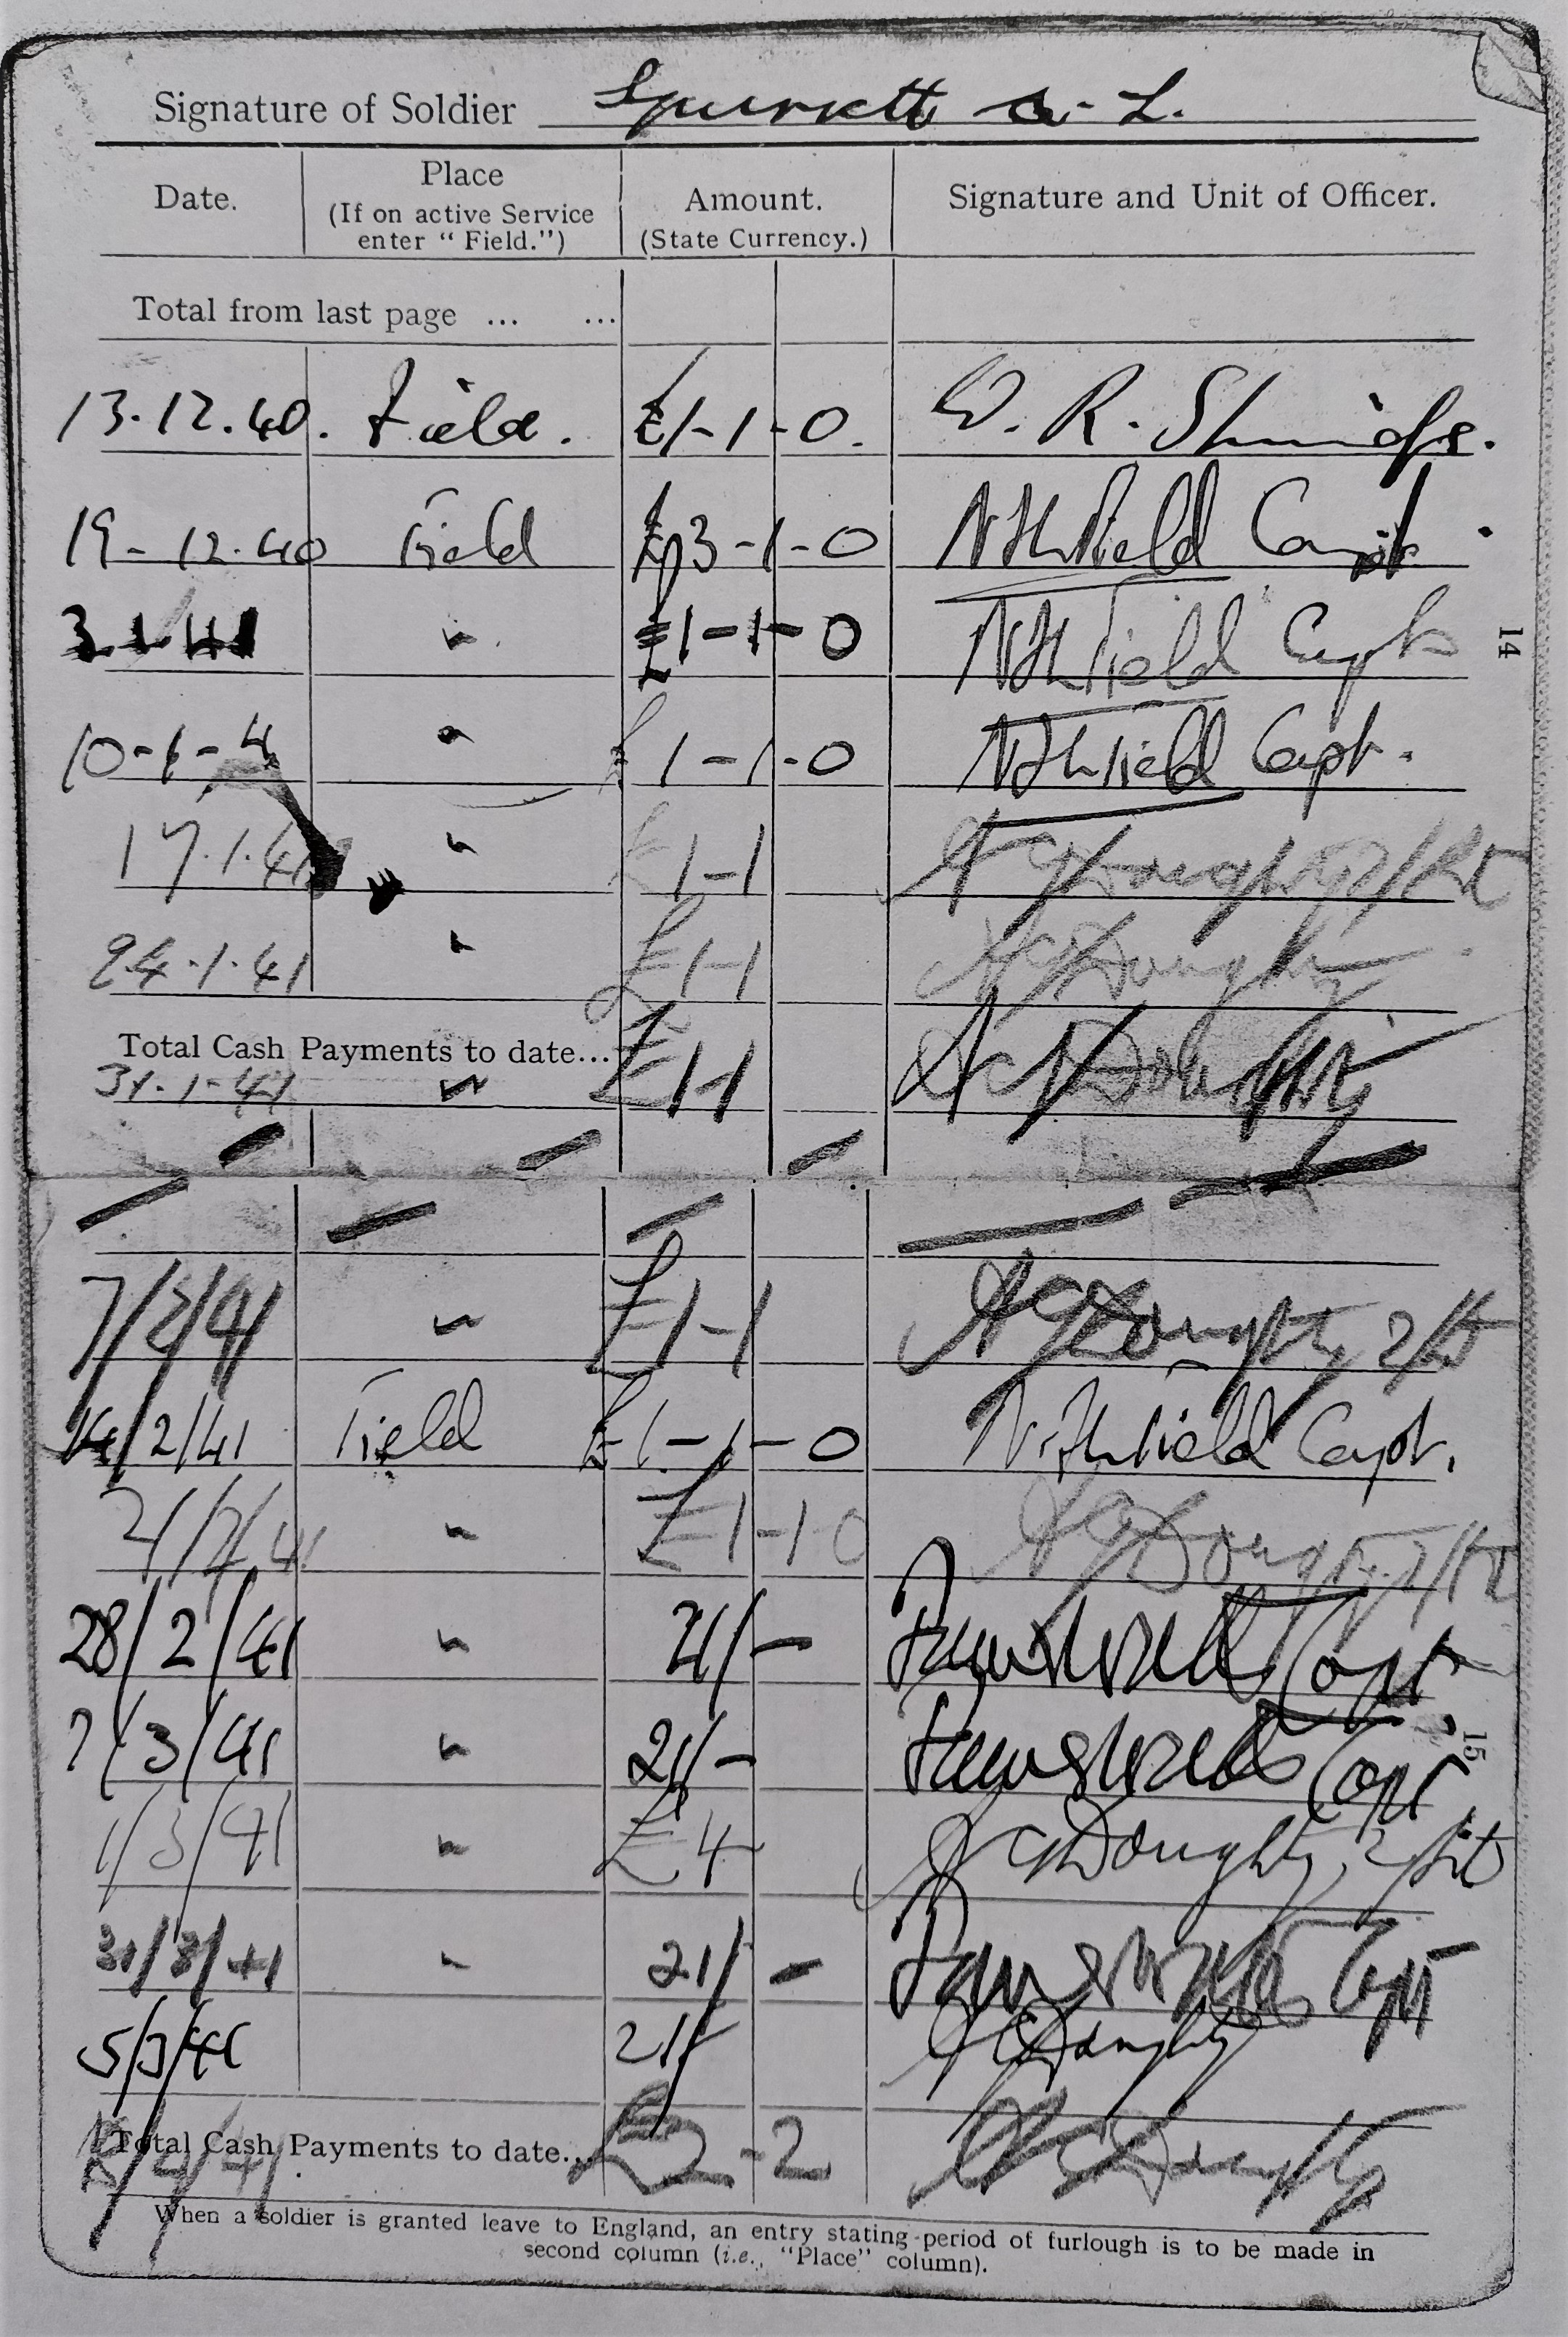 Signature of Soldier
Date. Place Amount. Signature and Unit of Officer.
(If on active Service
enter " Field.") (State Currency.)
Total from last page ... ...
13.12.40. Field. £1-1-0. W. R.
19-12.40 Field £3-1-0 Field Capt.
3 1 41 " £1-1-0 Field Capt
14
10-1-4 " £ 1-1-0 Field Capt.
17.1.41 " £ 1-1 Doughty 2/Lt
24.1.41 " £1-1 Doughty
Total Cash Payments to date... £1-1 Doughty
31.1.41 "
7/2/41 " £1-1 Doughty 2/Lt
14/2/41 Field £1-1-0 Field Capt.
21/2/41 " £1-1 0 Doughty 2/Lt
28/2/41 " 21/- Capt
7/3/41 " 21/- Capt
15
/3/41 " £4 Doughty, 2/Lt
31/3/41 " 21/- Capt
5/3/41 21/ Doughty
Total Cash Payments to date... £2-2 Doughty
/4/41.
When a soldier is granted leave to England, an entry stating period of furlough is to be made in
second column (i.e., "Place" column).